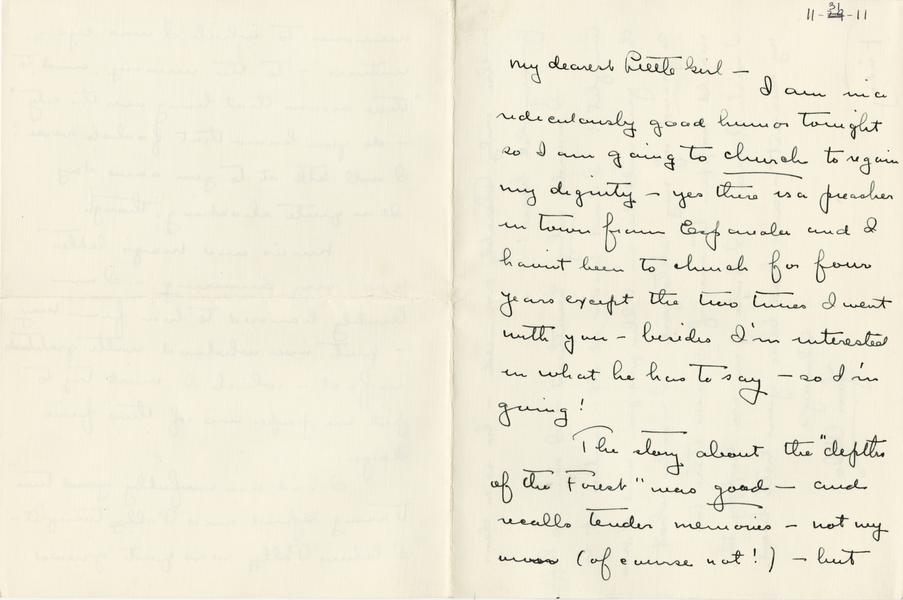 11-31-11
My dearest Little Girl —
I am in a
rediculously good humor tonight
so I am going to church to regain
my dignity — yes there is a preacher
in town from and I
havint been to church for four
years except the two times I went
with you — besides I'm interested
in what he has to say — so I'm
going!
The story about the "depths
of the Forest" was good — and
recalls tender memories — not my
own (of course not!) — but